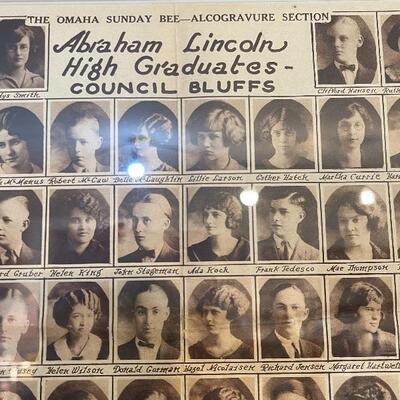 THE OMAHA SUNDAY BEE—ALCOGRAVURE SECTION
Abraham Lincoln
High Graduates-
COUNCIL BLUFFS
Smith Clifford Hansen
McManus Robert McCaw Belle McLaughlin Lillie Larson Esther Hatch Martha Currie
Gruber Helen King John Stageman Ada Kock Frank Tedesco Mae Thompson
Helen Wilson Donald Gorman Hazel Nicolaisen Richard Jensen Margaret Hartwell